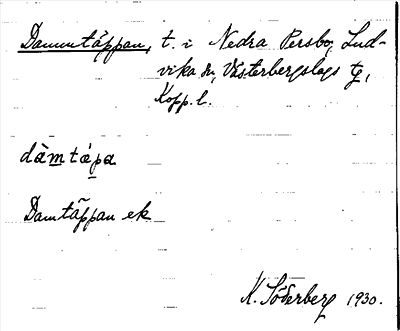 Dammtäppan, t. i Nedra Persbo, Lud-
vika sn, Västerbergslags tg,
Kopp. l.
dàmtápa
Damtäppan ek
K. Söderberg 1930.